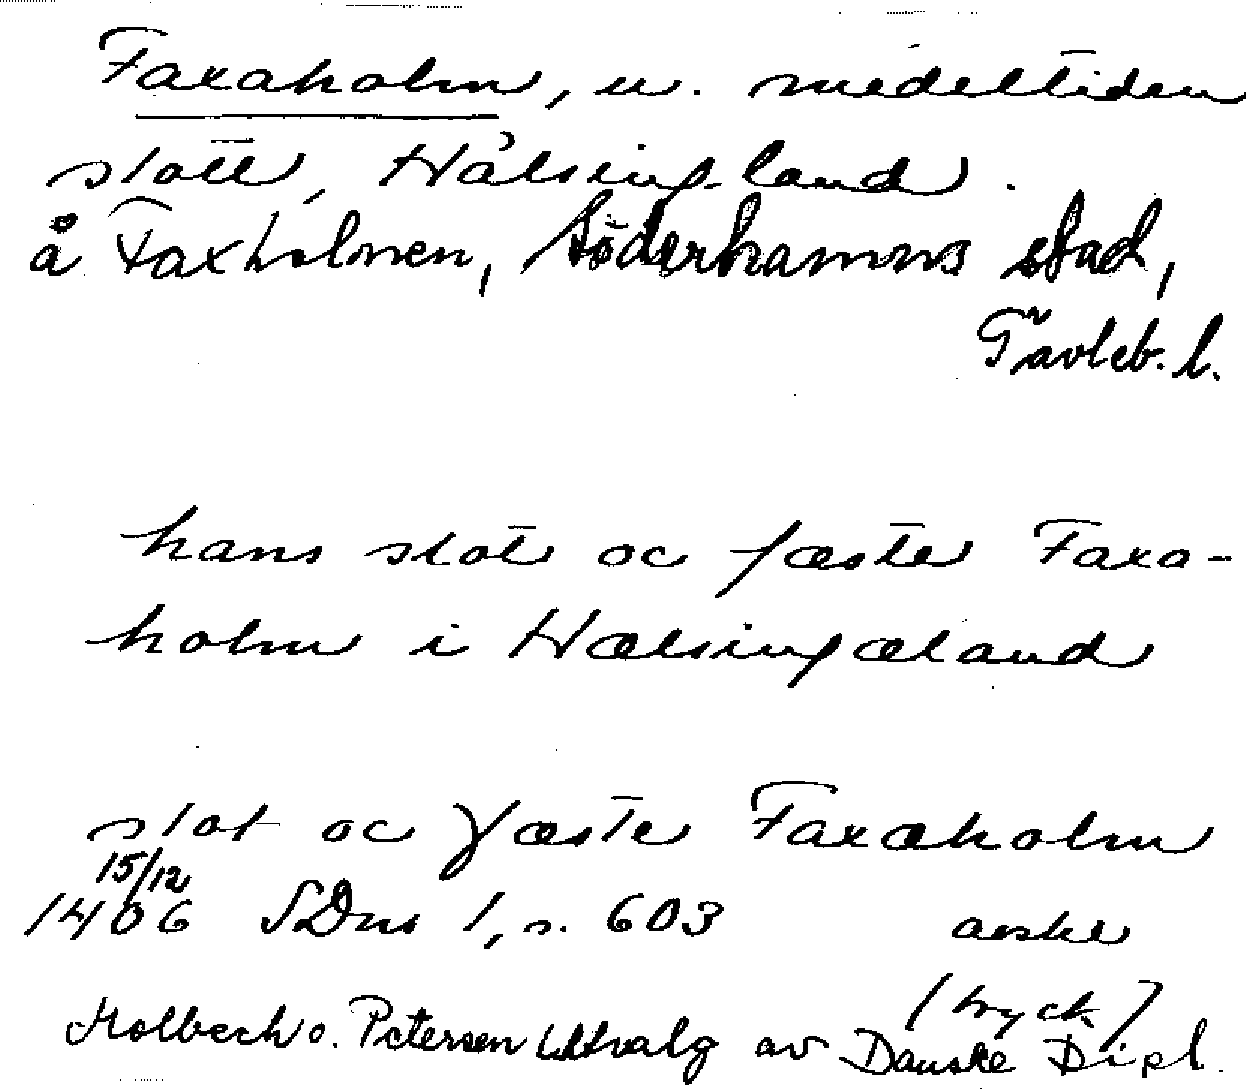 Faxaholm, u. medeltiden
slott, Hälsingland.
å Faxholmen, Söderhamns stad,
Gävleb. l.
hans slot oc fæste Faxa-
holm i Hælsingæland
slot oc fæste Faxæholm
15/12
1406 SDns 1, s. 603 avskr
[tryck]
Molbech o. Petersen Udvalg av Danske Dipl.